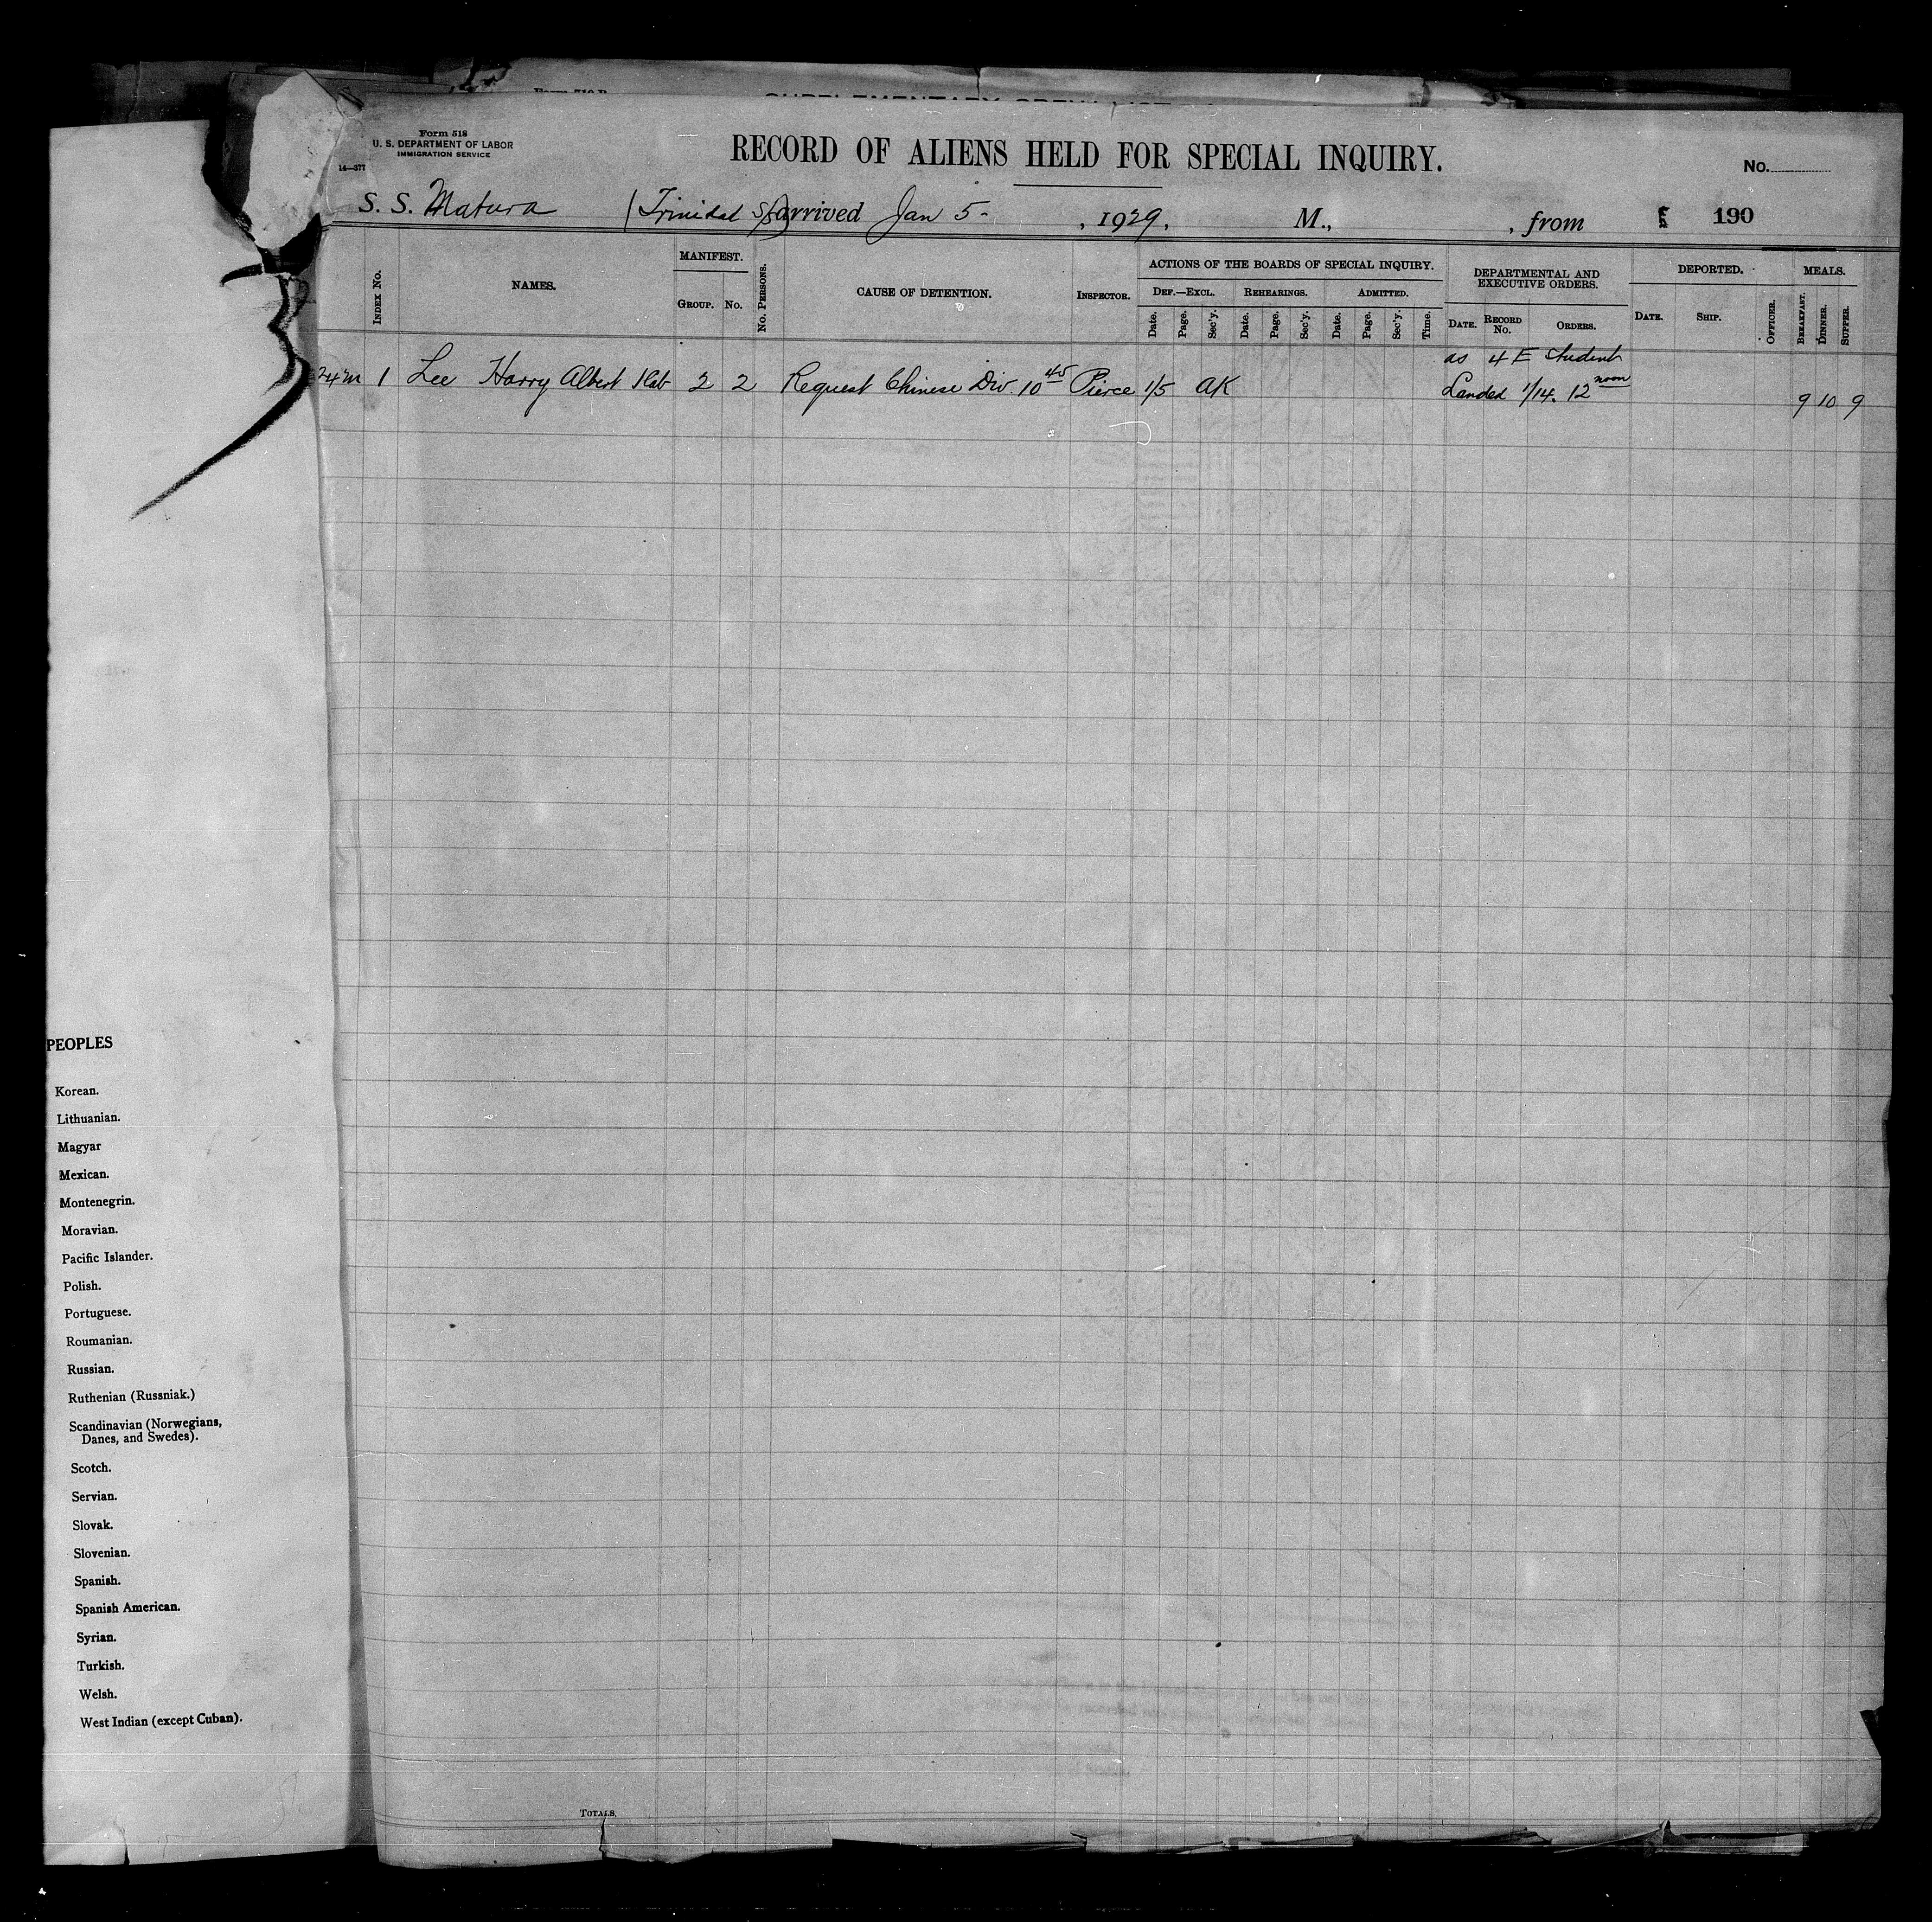 Form 518
U. S. DEPARTMENT OF LABOR
IMMIGRATION SERVICE
14—377
RECORD OF ALIENS HELD FOR SPECIAL INQUIRY.
No.
S. S. Matura (Trinidad arrived Jan 5- , 1929, M., , from 190
INDEX NO.
NAMES.
MANIFEST.
GROUP.
NO.
NO. PERSONS.
CAUSE OF DETENTION.
INSPECTOR.
ACTIONS OF THE BOARDS OF SPECIAL INQUIRY.
DEF.—EXCL.
REHEARINGS.
ADMITTED.
Date. Page. Sec'y. Date. Page. Sec'y. Date. Page. Sec'y. Time.
DEPARTMENTAL AND
EXECUTIVE ORDERS.
DATE.
RECORD
NO.
ORDERS.
DEPORTED.
DATE.
SHIP.
OFFICER.
MEALS.
BREAKFAST.
DINNER.
SUPPER.
as 4 E Student
24 m 1 Lee Harry Albert 2 2 Request Chinese Div. 10 45 Pierce 1/5 AK Landed 1/14. 12 noon 9 10 9
PEOPLES
Korean.
Lithuanian.
Magyar
Mexican.
Montenegrin.
Moravian.
Pacific Islander.
Polish.
Portuguese.
Roumanian.
Russian.
Ruthenian (Russniak.)
Scandinavian (Norwegians,
Danes, and Swedes).
Scotch.
Servian.
Slovak.
Slovenian.
Spanish.
Spanish American.
Syrian.
Turkish.
Welsh.
West Indian (except Cuban).
TOTALS.